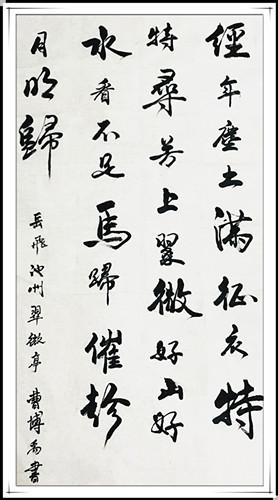 經年塵土滿征衣特
特尋芳上翠微好山好
水看不足馬蹄催趁
月明歸
岳飛池州翠微亭 曹博書